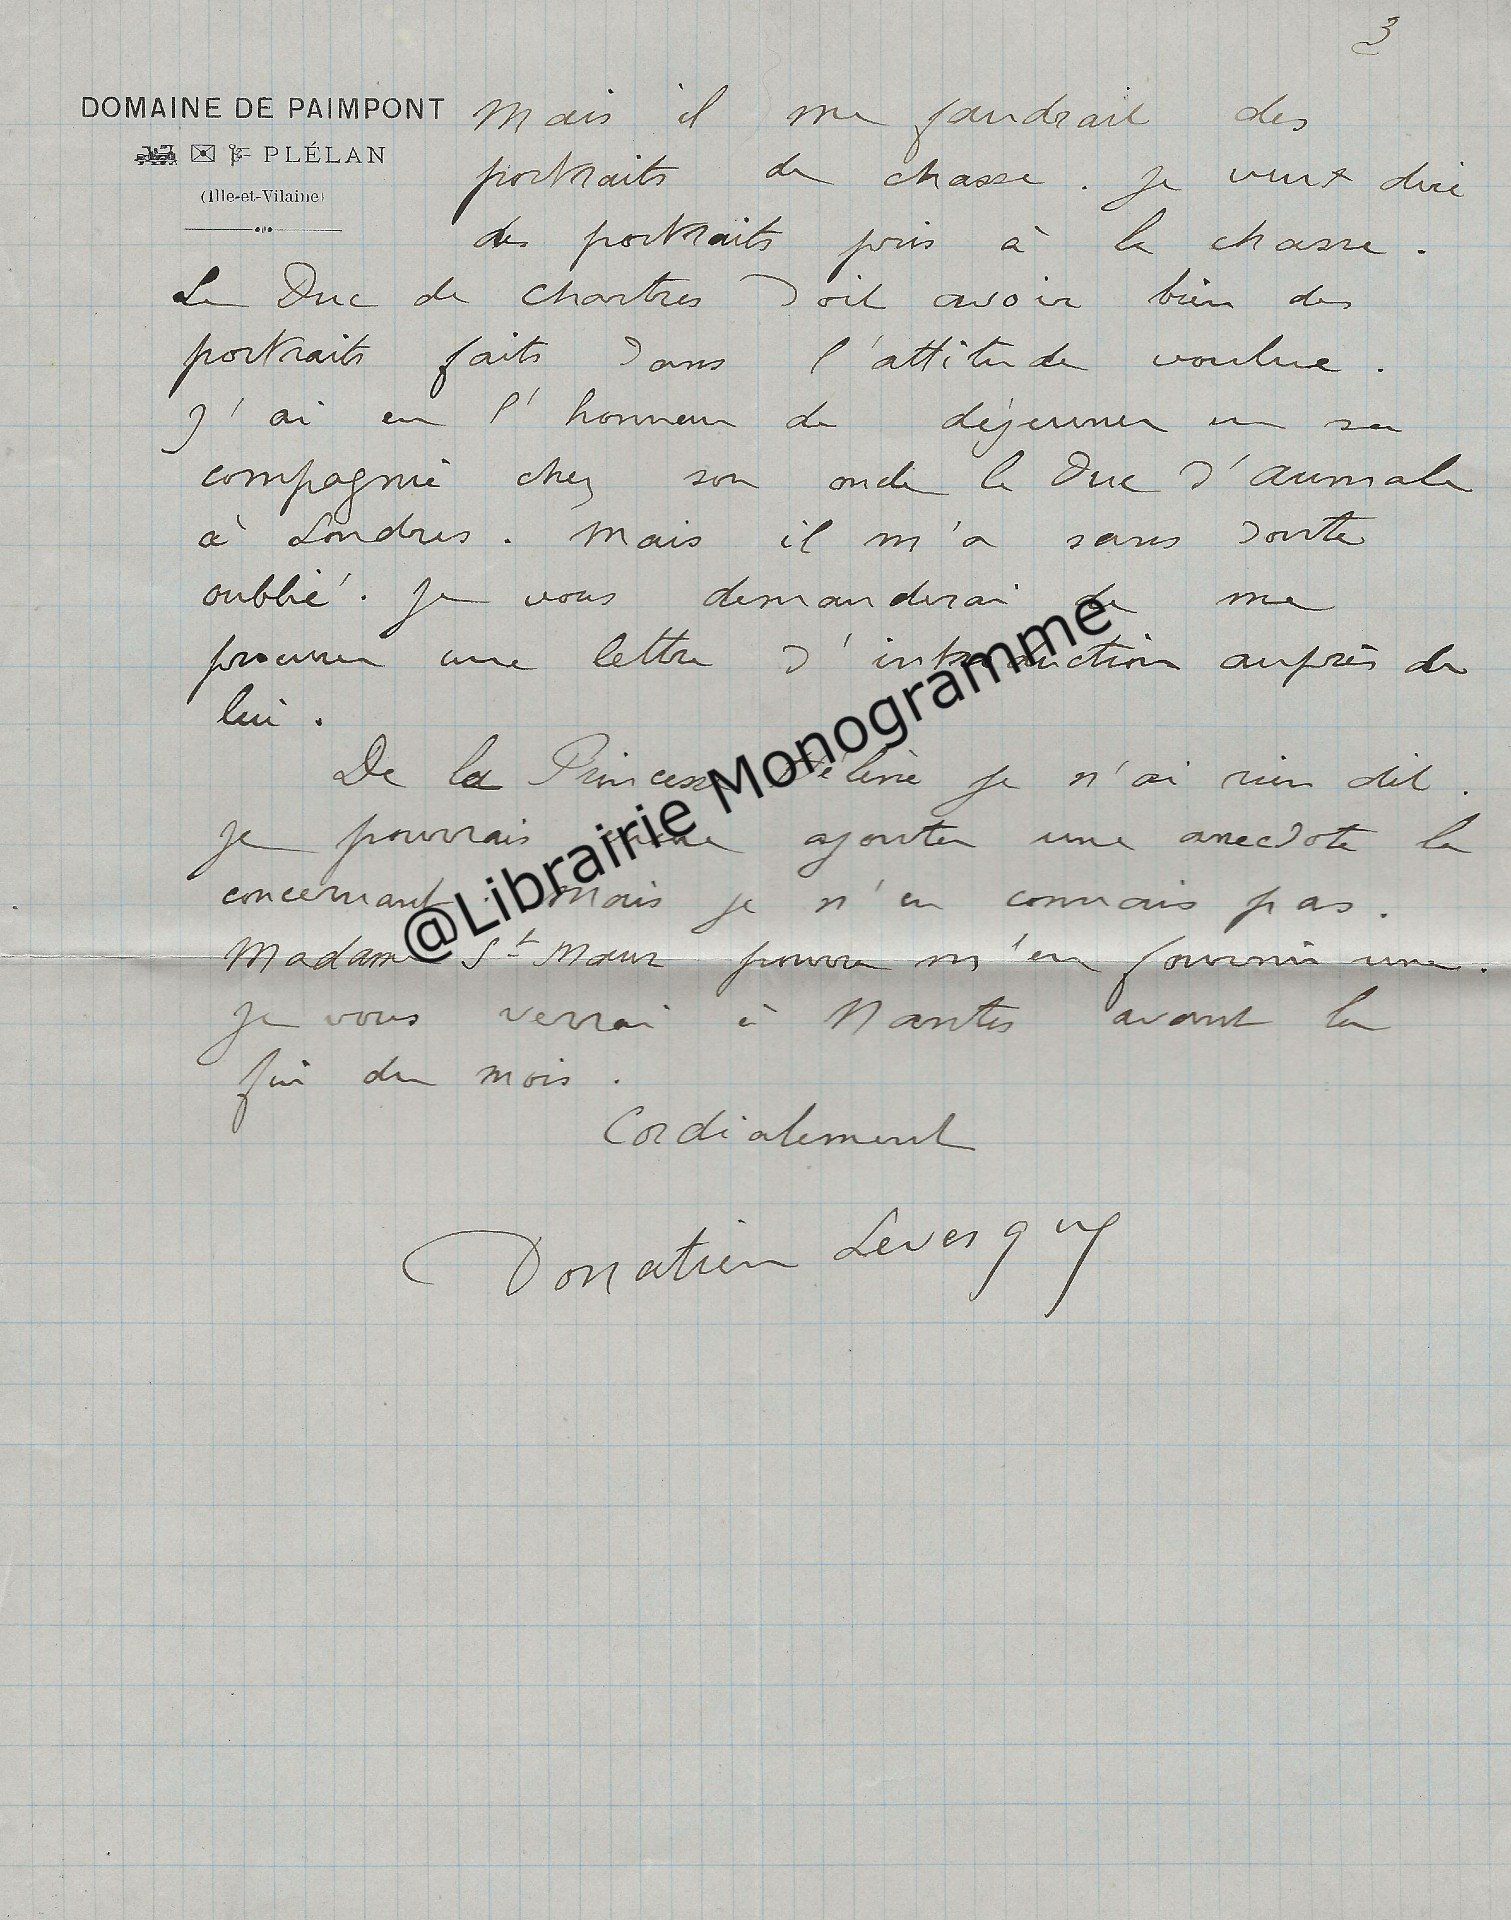 3
DOMAINE DE PAIMPONT
PLÉLAN
(Ille-et-Vilaine)
Mais il me faudrait des
portraits de chasse. Je veux dire
des portraits pris à la chasse.
Le Duc de Chartres doit avoir bien des
portraits faits dans l'attitude voulue.
J'ai eu l'honneur de déjeuner en sa
compagnie chez son oncle le Duc d'Aumale
à Londres. Mais il m'a sans doute
oublié. Je vous demanderai de me
procurer une lettre d'introduction auprès de
lui.
De la Princesse Hélène je n'ai rien dit.
Je pourrais ajouter une anecdote la
concernant. Mais je n'en connais pas.
Madame St Maur pourra m'en fournir une.
Je vous verrai à Nantes avant la
fin du mois.
Cordialement
Donatien Levesque
@Librairie Monogramme